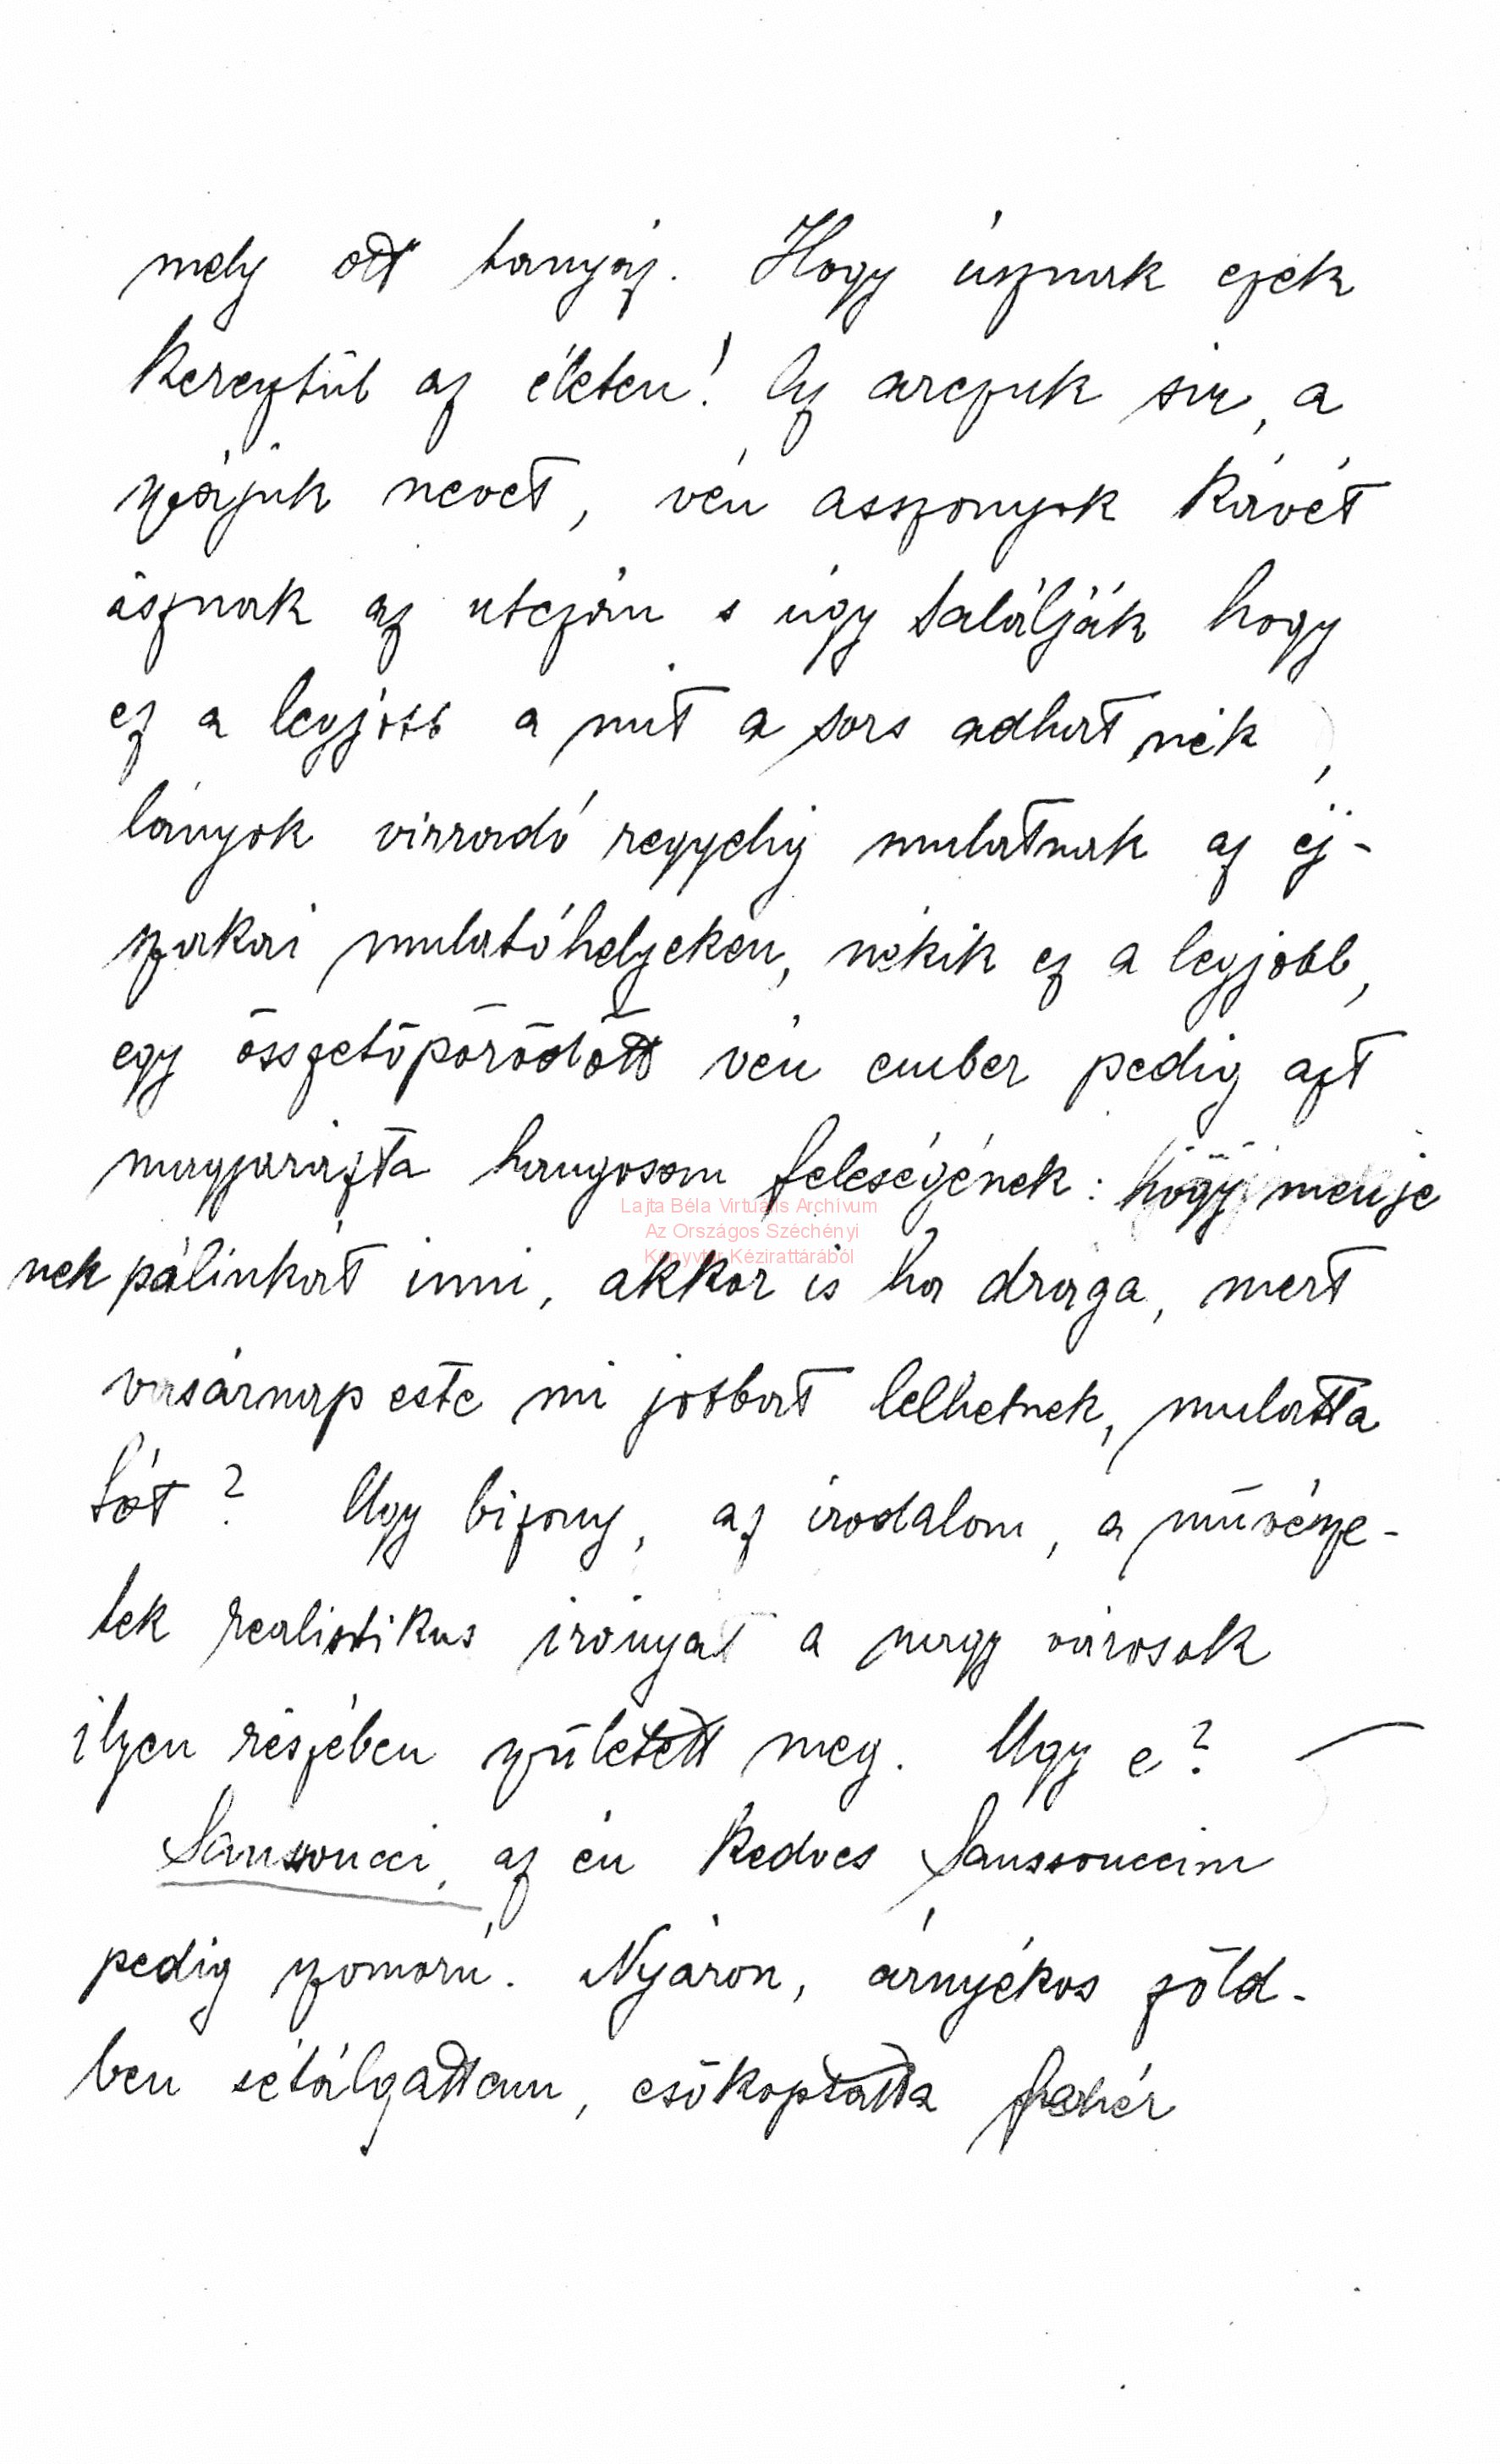 mely ott tanyáz. Hogy úsznak ezek
keresztül az életen! Az arczuk sír, a
szájuk nevet, vén asszonyok kávét
isznak az utczán s úgy találják hogy
ez a legjobb a mit a sors adhat nék,
lányok virradó reggelig mulatnak az éj-
szakai mulatóhelyeken, nékik ez a legjobb,
egy összetöpörödött vén ember pedig azt
magyarázta hangosan feleségének: hogy menje
Lajta Béla Virtuális Archívum
Az Országos Széchényi
Könyvtár Kézirattárából
nek pálinkát inni, akkor is ha drága, mert
vasárnap este mi jobbat lelhetnek, mulatta
tót? Ugy bizony, az irodalom, a művésze-
tek realistikus irányat a nagy városok
ilyen részében született meg. Ugy e?
Sanssoucci, az én kedves Sanssouccim
pedig szomorú. Nyáron, árnyékos zöld-
ben sétálgattam, esőkoptatta fehér